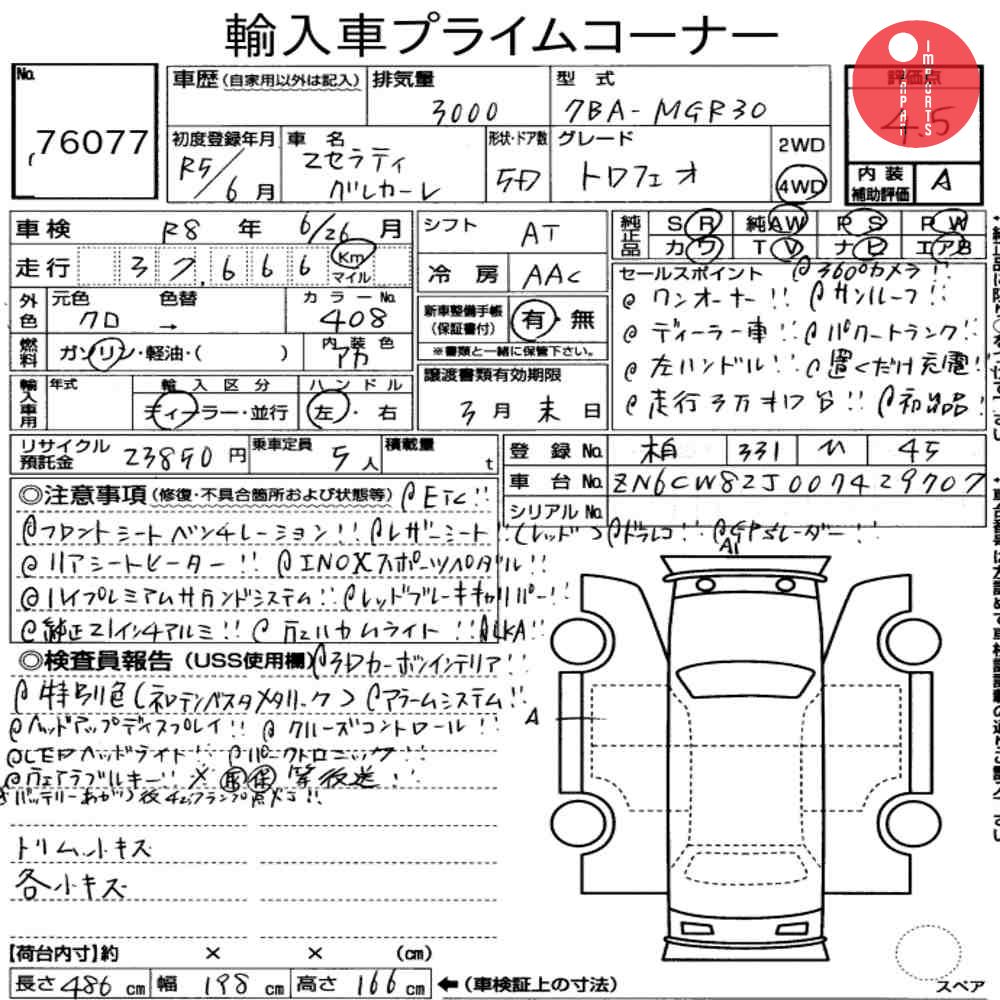 輸入車プライムコーナー
JAPAN IMPORTS
No. 76077
車歴(自家用以外は記入) 排気量 3000 型式 7BA-MGR30
評価点 4.5
初度登録年月 R5/6月 車名 マセラティ グレカーレ 形状・ドア数 5D グレード トロフェオ 2WD 4WD
内装補助評価 A
車検 R8年 6/26月 シフト AT 純正品 SR 純AW PS PW
カワ TV ナビ エアB
走行 37,666 Km マイル 冷房 AAC
セールスポイント @360°カメラ!!
外色 元色 クロ 色替 → カラーNo. 408 新車整備手帳(保証書付) 有・無
@ワンオーナー!! @サンルーフ!!
※書類と一緒に保管下さい。
@ディーラー車!! @パワートランク!!
燃料 ガソリン・軽油・( ) 内装色 アカ
@左ハンドル!! @置くだけ充電!!
輸入車用 年式 輸入区分 ディーラー・並行 ハンドル 左・右 譲渡書類有効期限 3月末日
@走行3万キロ台!! @初出品!
リサイクル預託金 23850円 乗車定員 5人 積載量 t 登録No. 柏 331 45
車台No. ZN6CW82J007429707
シリアルNo.
◎注意事項(修復・不具合箇所および状態等) @ETC!!
@フロントシートベンチレーション!! @レザーシート!!(レッド) @ドラレコ!! @GPSレーダー!!
A1
@リアシートヒーター!! @INOXスポーツペダル!!
@ハイプレミアムサウンドシステム!! @レッドブレーキキャリパー!!
@純正21インチアルミ!! @ウェルカムライト!! @LKA!!
◎検査員報告(USS使用欄) @3Dカーボンインテリア!!
@特別色( メタリック) @アラームシステム!!
@ヘッドアップディスプレイ!! @クルーズコントロール!!
A
@LEDヘッドライト!! @パークトロニック!!
@ウェアラブルキー!! ※取保等後送!!
バッテリーあがり後 ランプ点灯!!
トリム小キズ
各小キズ
【荷台内寸】約 × × (cm)
長さ 486 cm 幅 198 cm 高さ 166 cm ←(車検証上の寸法)
スペア